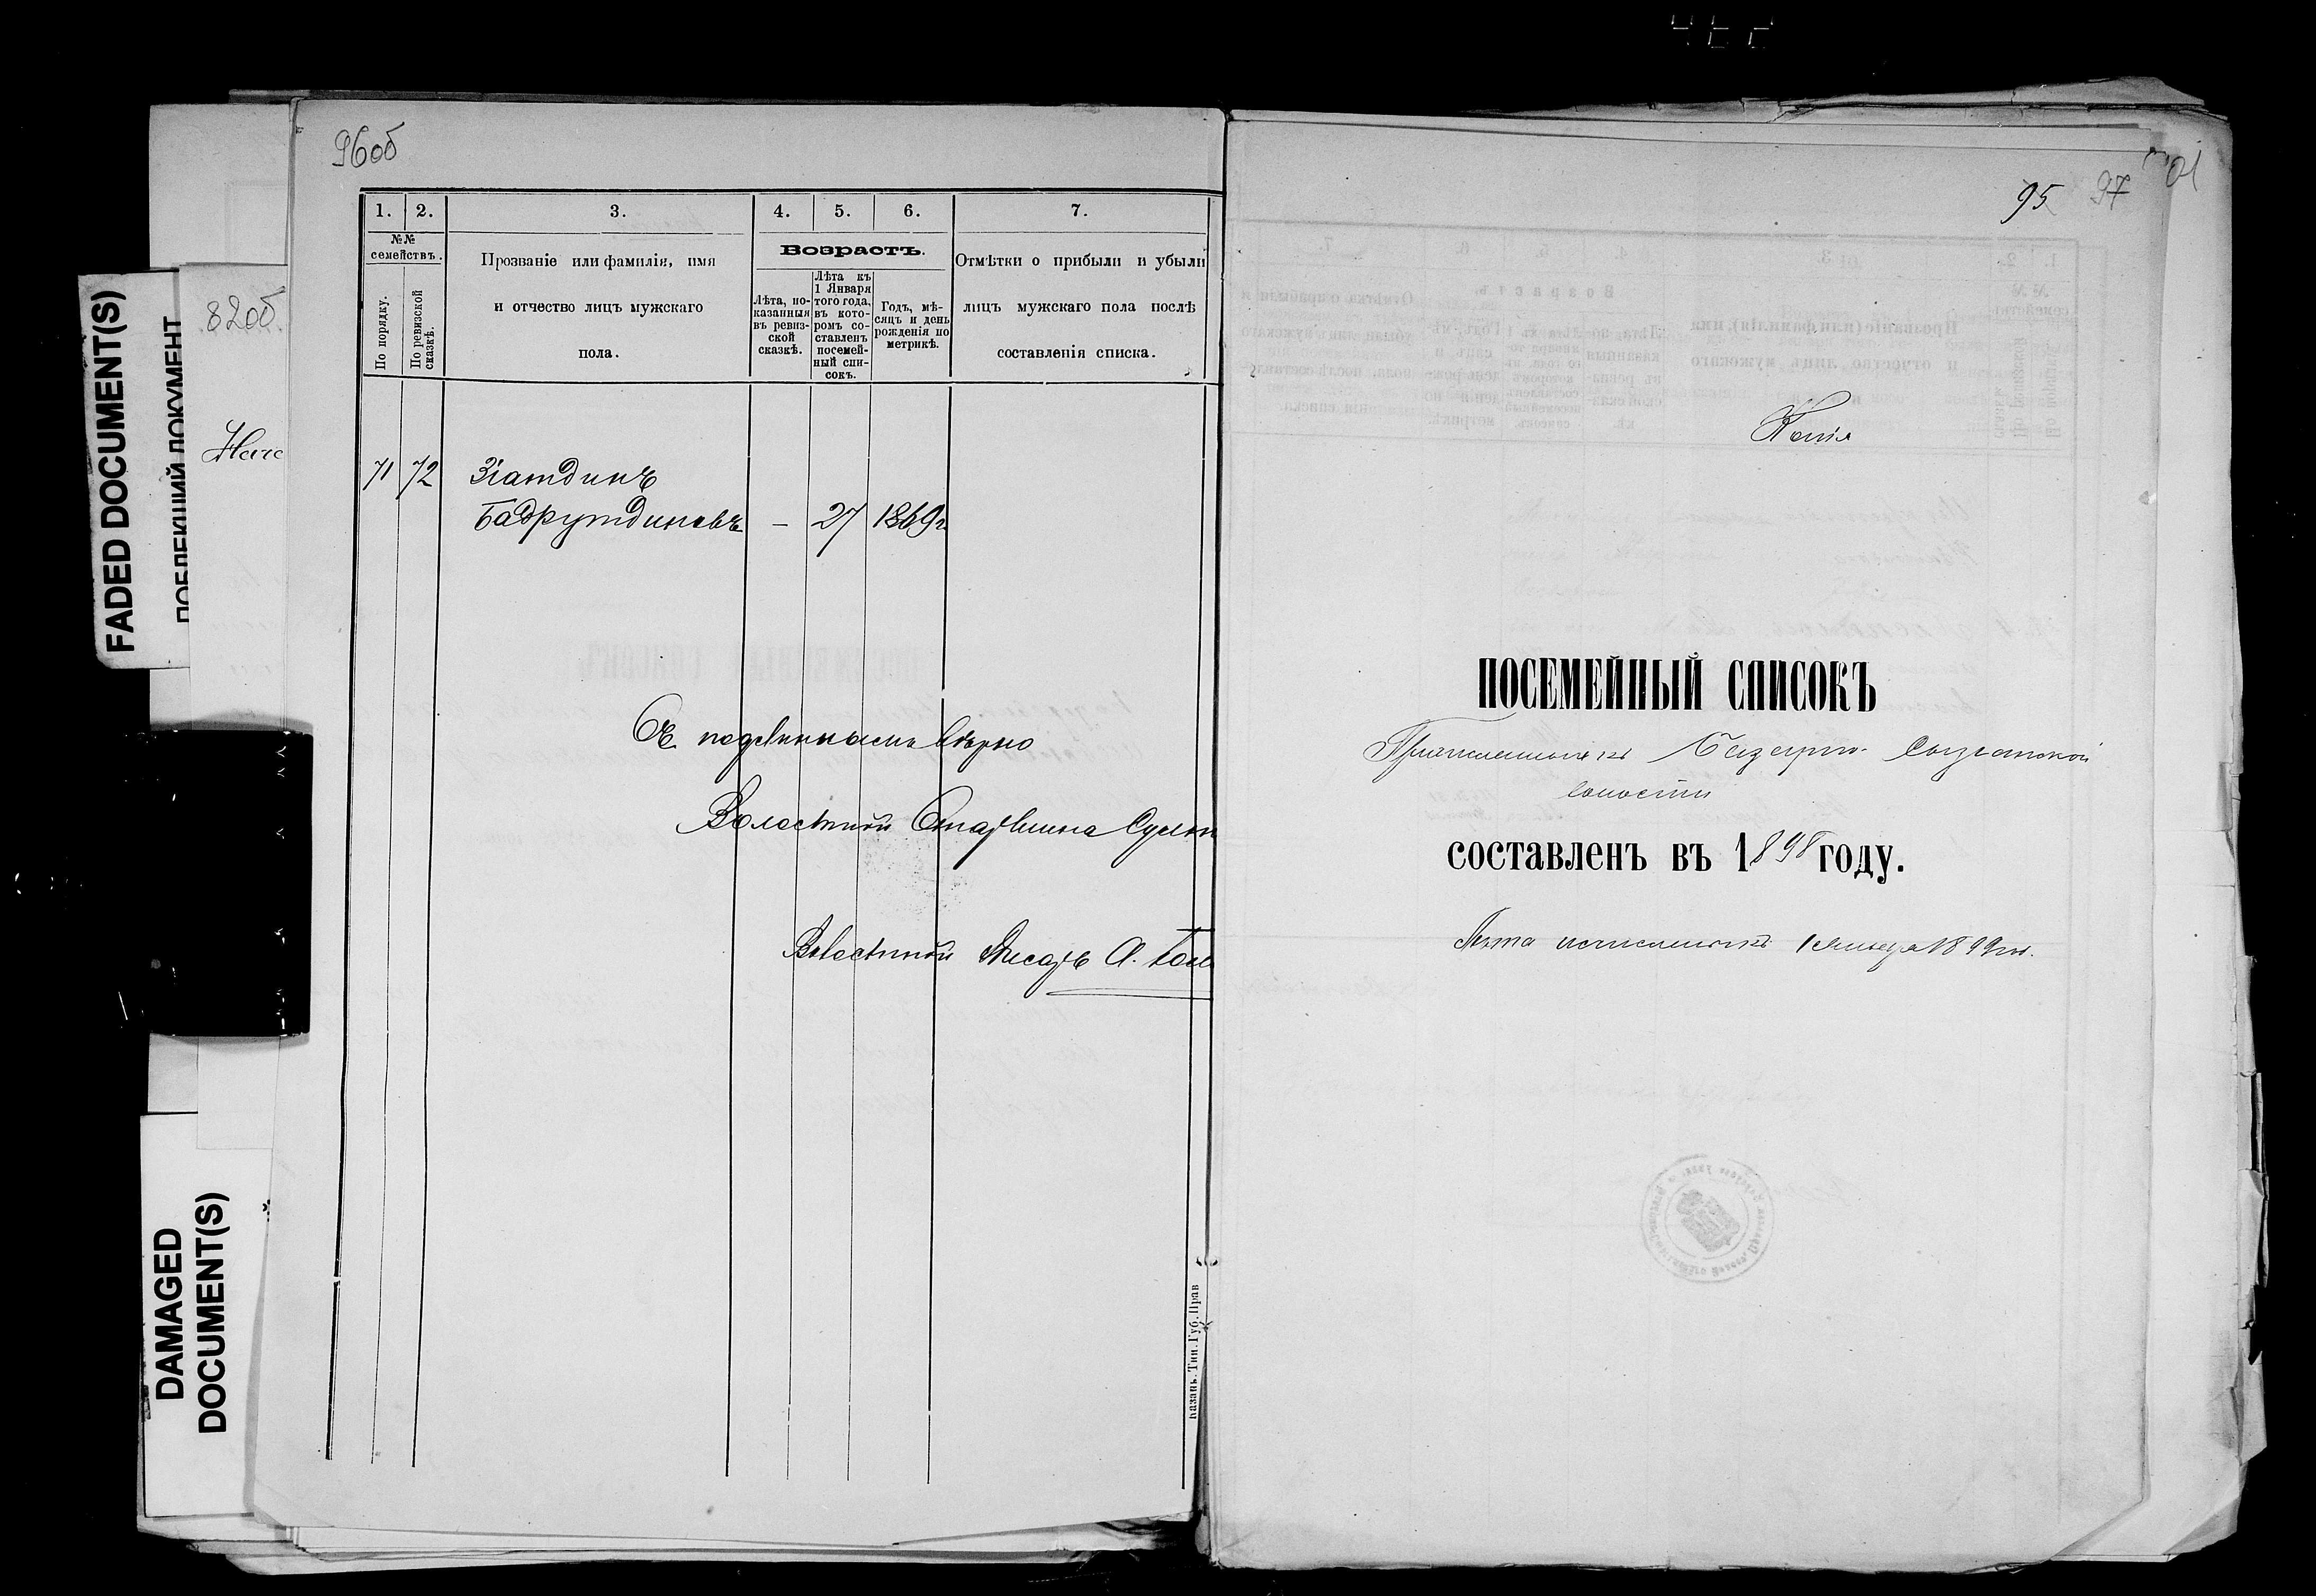 96об
1. 2. 3. 4. 5. 6. 7.
№№ семействъ.
По порядку.
По ревизской сказкѣ.
Прозваніе или фамилія, имя
и отчество лицъ мужскаго
пола.
Возрастъ.
Лѣта, показанныя въ ревизской сказкѣ.
Лѣта къ 1 Января того года, въ которомъ составленъ посемейный списокъ.
Годъ, мѣсяцъ и день рожденія по метрикѣ.
Отмѣтки о прибыли и убыли
лицъ мужскаго пола послѣ
составленія списка.
71 72 Зіатдинъ
Бадрутдиновъ - 27 1869г
Съ подлиннымъ вѣрно
Волостной Старшина
Волостной Писарь А.
Казань. Тип. Губ. Прав
FADED DOCUMENT(S)
82об.
DAMAGED
DOCUMENT(S)
95 97
Копія
ПОСЕМЕЙНЫЙ СПИСОКЪ
волости
составленъ въ 1898 году.
Лѣта 1 Января 1899 г.